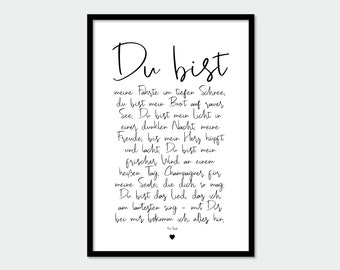 Du bist
meine Fährte im tiefen Schnee,
du bist mein Boot auf rauer
See, Du bist mein Licht in
einer dunklen Nacht, meine
Freude, bis mein Herz hüpft
und lacht, Du bist mein
frischer Wind an einem
heißen Tag, Champagner für
meine Seele, die dich so mag
Du bist das Lied, das ich
am lautesten sing - mit Dir
bei mir bekomm ich alles hin